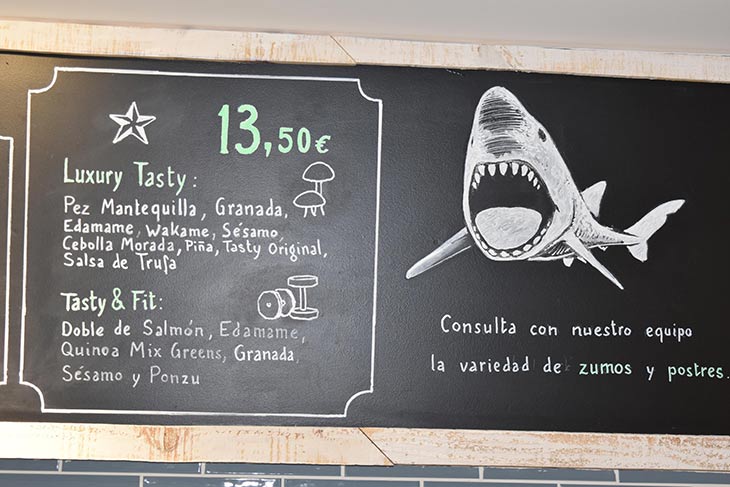 13,50€
Luxury Tasty:
Pez Mantequilla, Granada,
Edamame, Wakame, Sésamo,
Cebolla Morada, Piña, Tasty Original,
Salsa de Trufa
Tasty & Fit:
Doble de Salmón, Edamame,
Quinoa Mix Greens, Granada,
Sésamo y Ponzu
Consulta con nuestro equipo
la variedad de zumos y postres.